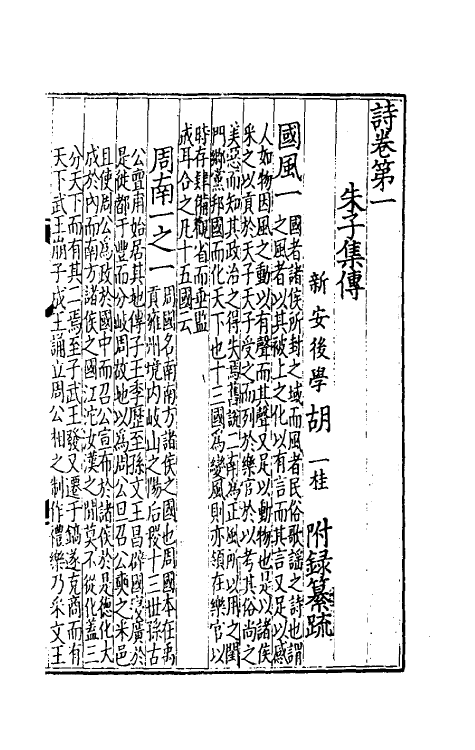 詩卷第一
朱子集傳
新安後學胡一桂附録纂疏
國風一
國者諸侯所封之域而風者民俗歌謡之詩也謂
之風者以其被上之化以有言而其言又足以感
人如物因風之動以有聲而其聲又足以動物也是以諸侯
采之以貢於天子天子受之而列於樂官於以考其俗尚之
美惡而知其政治之得失焉舊說二南爲正風所以用之閨
門鄉黨邦國而化天下也十三國爲變風則亦領在樂官以
時存肄備觀省而垂監
戒耳合之凡十五國云
周南一之一
周國名南南方諸侯之國也周國本在禹
貢雍州境内岐山之陽后稷十三世孫古
公亶甫始居其地傳子王季歷至孫文王昌辟國寖廣於
是徙都于豐而分岐周故地以爲周公旦召公奭之采邑
且使周公爲政於國中而召公宣布於諸侯於是德化大
成於内而南方諸侯之國江沱汝漢之間莫不從化蓋三
分天下而有其二焉至子武王發又遷于鎬遂克商而有
天下武王崩子成王誦立周公相之制作禮樂乃采文王